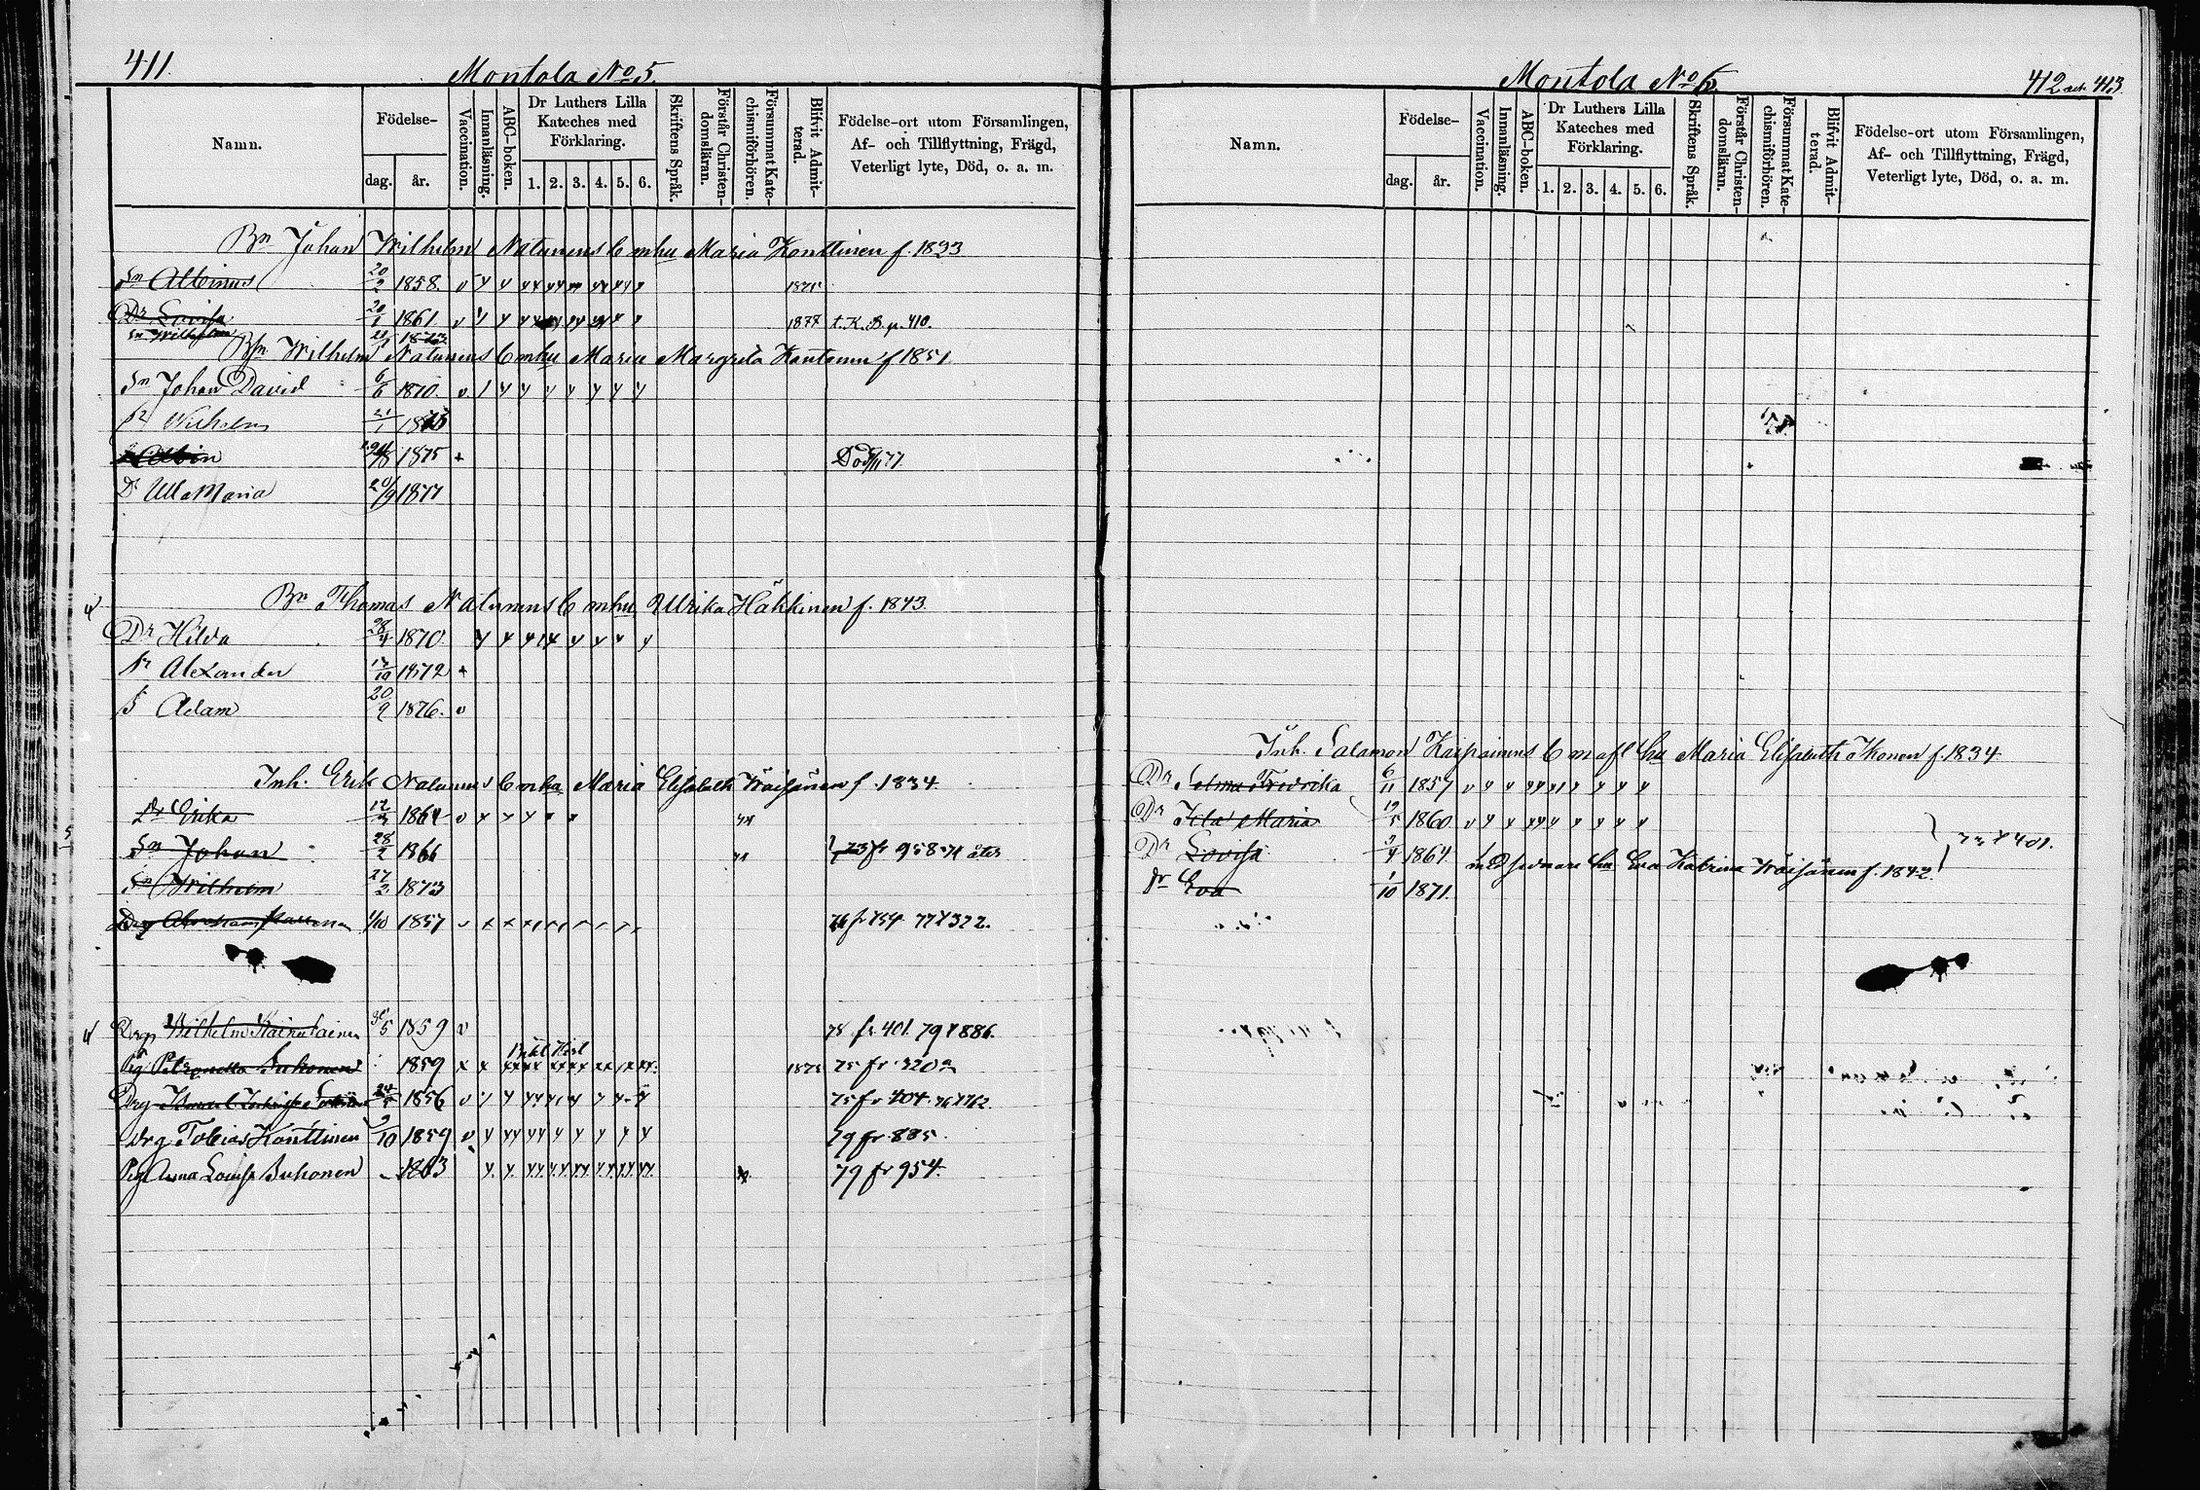 411.
Montola No 5.
Namn.
Födelse-
dag. år.
Vaccination.
Innanläsning.
ABC-boken.
Dr Luthers Lilla
Kateches med
Förklaring.
1. 2. 3. 4. 5. 6.
Skriftens Språk.
Förstår Christen-
domsläran.
Försummat Kate-
chismiförhören.
Blifvit Admit-
terad.
Födelse-ort utom Församlingen,
Af- och Tillflyttning, Frägd,
Veterligt lyte, Död, o. a. m.
Bn Johan Wilhelm Natunens b m hu Maria Konttinen f. 1823
Sn Albinus 20/2 1858.
Dr Lovisa 20/1 1861 1877 t.K.B.p. 410.
Sn Wilhelm
Wilhelm Natunens b m hu Maria Margreta f 1851
Sn Johan David 6/6 1870.
Wilhelm 21/1 1873
Albin 1875 Död 77
D. Ulla Maria 20/9 1877
Bn Thomas Natunens b m hu Ulrika Häkkinen f. 1843.
Dr Hilda 28/4 1870.
Alexander 1872
S Adam 20/9 1876.
Inh. Erik Natunens b m ha Maria Elisabeth Wäisänen f. 1834
Dr Erika 1864
Sn Johan 28/2 1866 73 fr 958
Sn Wilhelm 27/2 1873
Drg Abraham 1/10 1857 76 fr 754 77 t 322.
Drg Wilhelm 1859 78 fr. 401. 79 t 886.
Pig. Petronella Suhonen 1859 75 fr 320
Drg 1856 75 fr 404.
Drg Tobias Konttinen 2/10 1859 79 fr 885.
Pig Anna Lovisa Suhonen 1863 79 fr 954.
Montola No 6.
412 och 413.
Namn.
Födelse-
dag. år.
Vaccination.
Innanläsning.
ABC-boken.
Dr Luthers Lilla
Kateches med
Förklaring.
1. 2. 3. 4. 5. 6.
Skriftens Språk.
Förstår Christen-
domsläran.
Försummat Kate-
chismiförhören.
Blifvit Admit-
terad.
Födelse-ort utom Församlingen,
Af- och Tillflyttning, Frägd,
Veterligt lyte, Död, o. a. m.
Inh. Salamon Kaipainens b m afl. ha Maria Elisabeth Ikonen f. 1834.
Dr Selma Fredrika 6/11 1857
Dr Ida Maria 19/5 1860
Dr Lovisa 3/4 1864
med sednare ha Eva Katrina Wäisänen f. 1842.
t 401.
Dr Eva 1/10 1871.